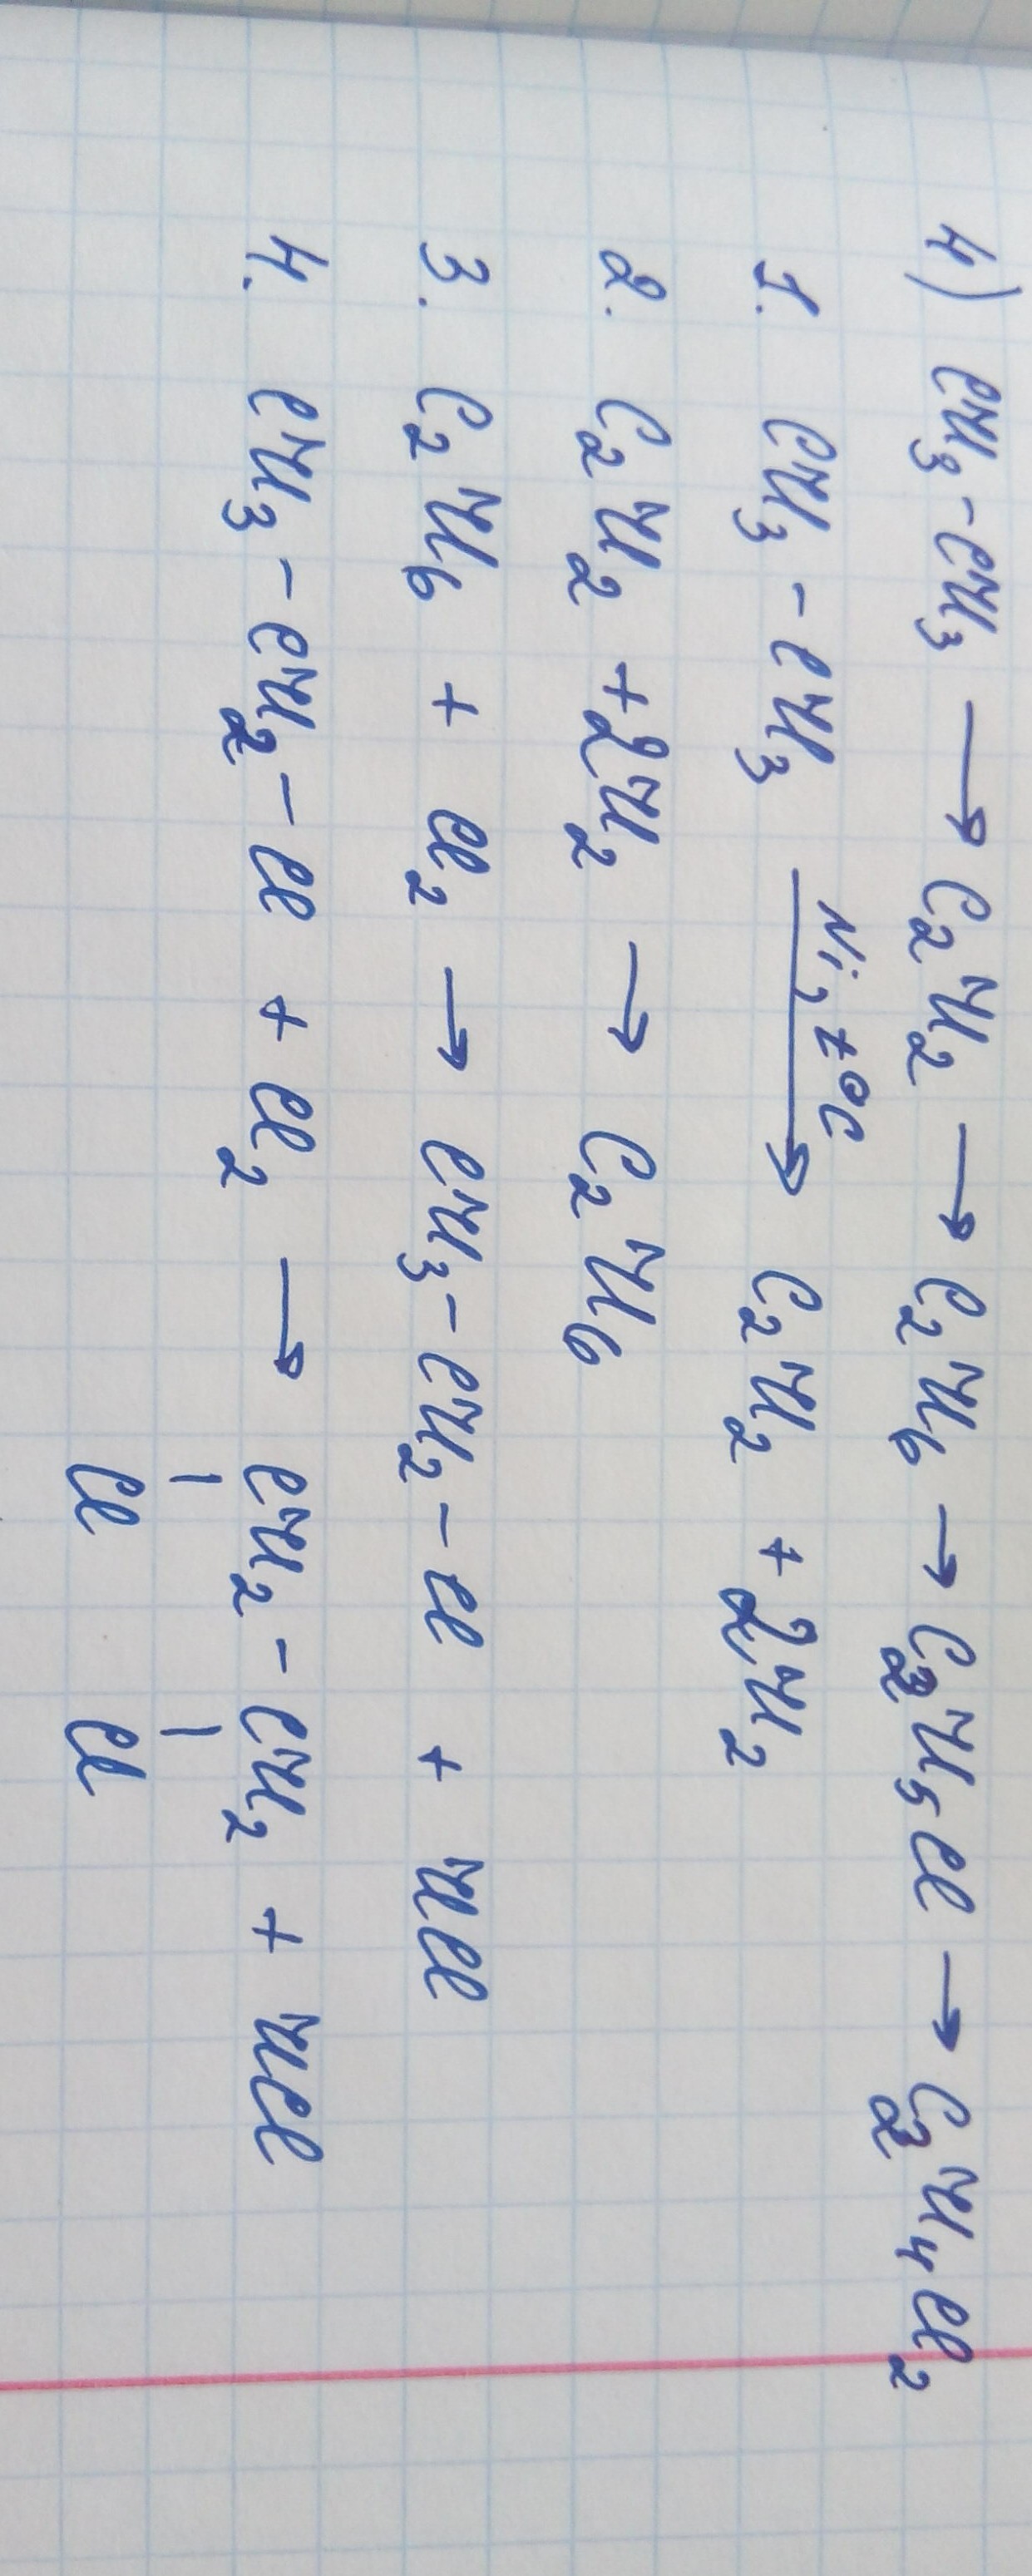 4) CH3-CH3 → C2H2 → C2H6 → C2H5Cl → C2H4Cl2
Ni, t°C
1. CH3 - CH3 → C2H2 + 2H2
2. C2H2 + 2H2 → C2H6
3. C2H6 + Cl2 → CH3 - CH2 - Cl + HCl
4. CH3 - CH2 - Cl + Cl2 → CH2 - CH2 + HCl
| |
Cl Cl